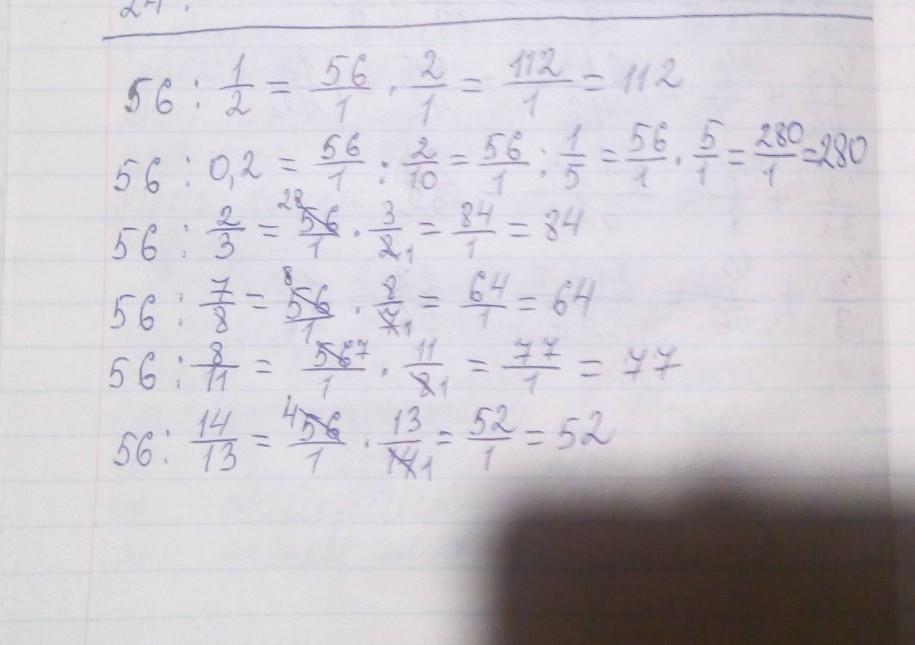 56 : 1/2 = 56/1 · 2/1 = 112/1 = 112
56 : 0,2 = 56/1 : 2/10 = 56/1 : 1/5 = 56/1 · 5/1 = 280/1 = 280
56 : 2/3 = 28 56/1 · 3/2 1 = 84/1 = 84
56 : 7/8 = 8 56/1 · 8/7 1 = 64/1 = 64
56 : 8/11 = 56 7/1 · 11/8 1 = 77/1 = 77
56 : 14/13 = 4 56/1 · 13/14 1 = 52/1 = 52